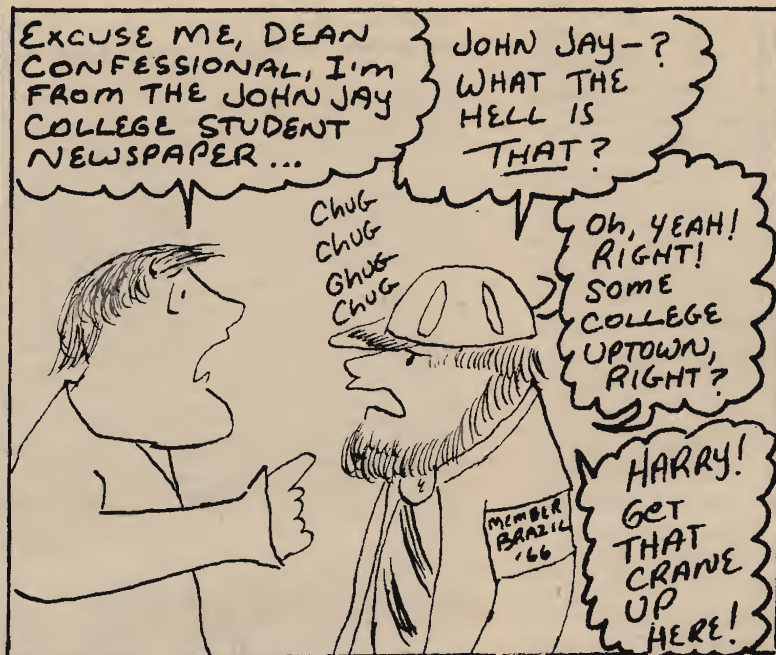 EXCUSE ME, DEAN
CONFESSIONAL, I'M
FROM THE JOHN JAY
COLLEGE STUDENT
NEWSPAPER...
JOHN JAY-?
WHAT THE
HELL IS
THAT?
CHUG
CHUG
GHUG
CHUG
Oh, YEAH!
RIGHT!
SOME
COLLEGE
UPTOWN,
RIGHT?
MEMBER
BRAZIL
'66
HARRY!
GET
THAT
CRANE
UP
HERE!